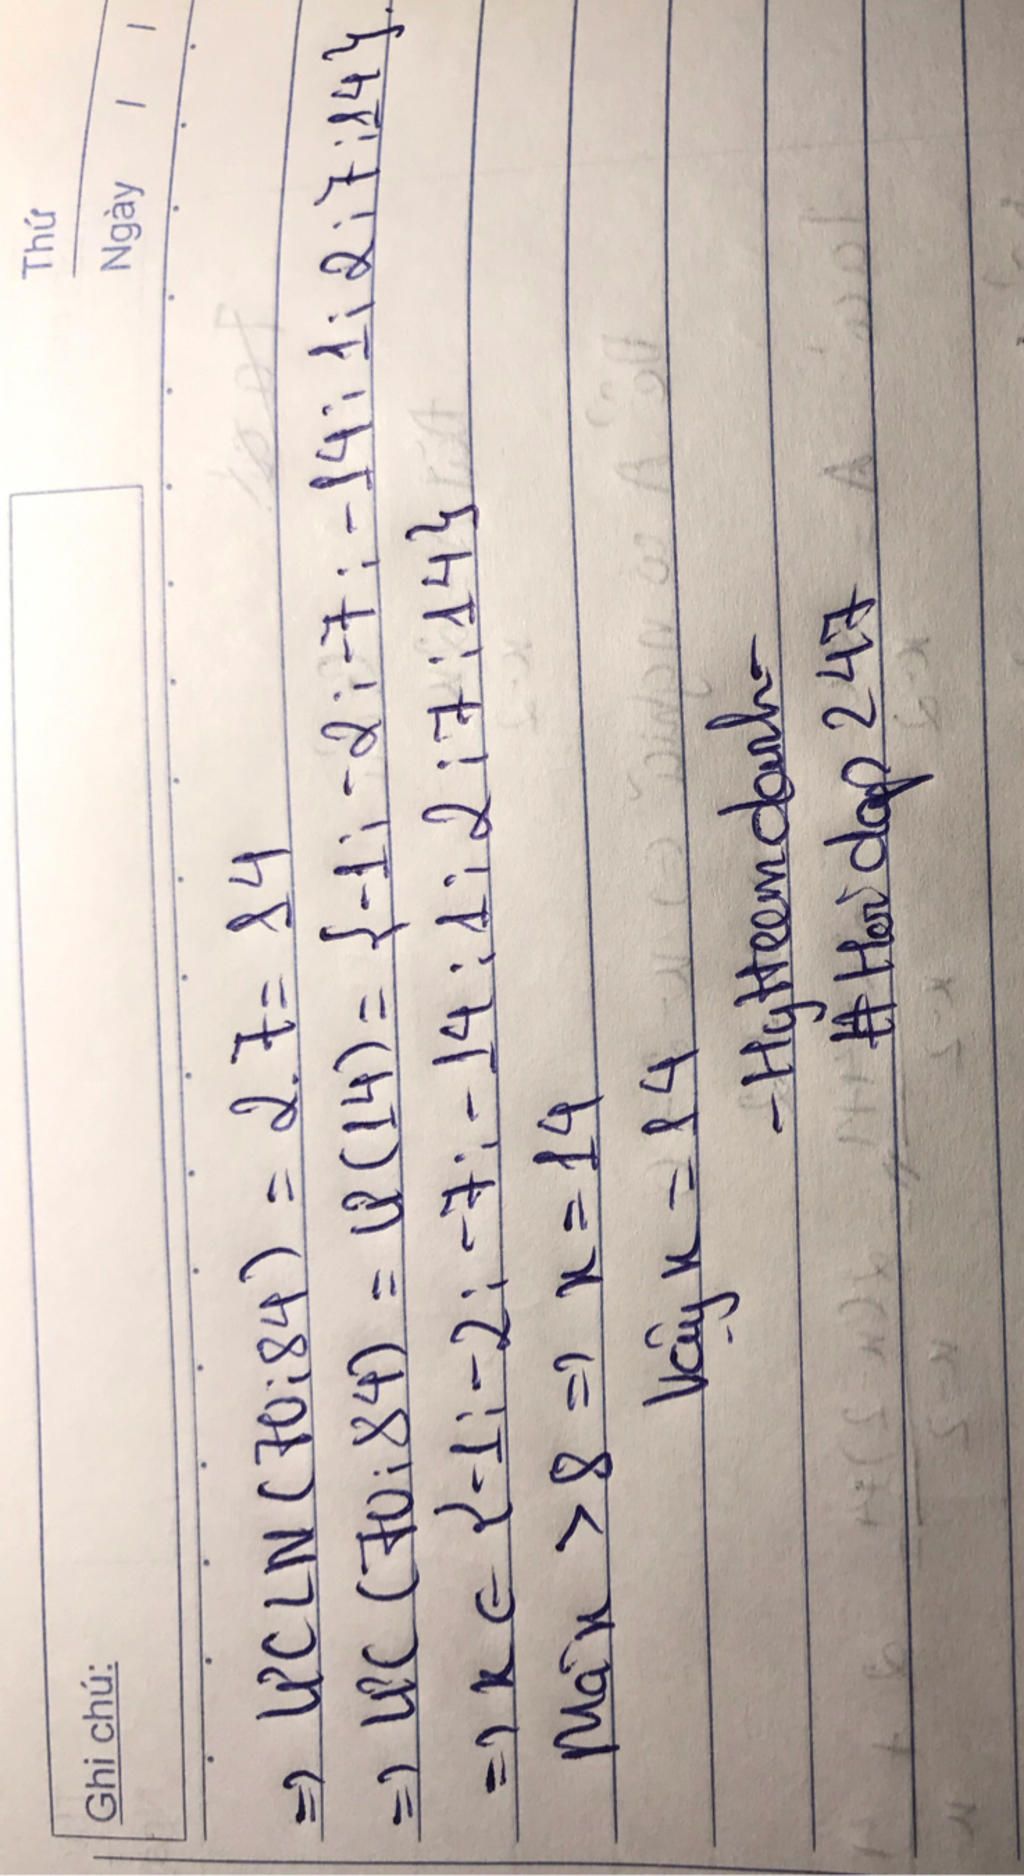 Thứ
Ngày / /
Ghi chú:
=> ƯCLN (70;84) = 2.7 = 14
=> ƯC (70;84) = Ư(14) = {-1; -2; -7; -14; 1; 2; 7; 14}.
=> x ∈ {-1; -2; -7; -14; 1; 2; 7; 14}
Mà x > 8 => x = 14
Vậy x = 14
- Hyfreemdanh -
# Hoidap 247